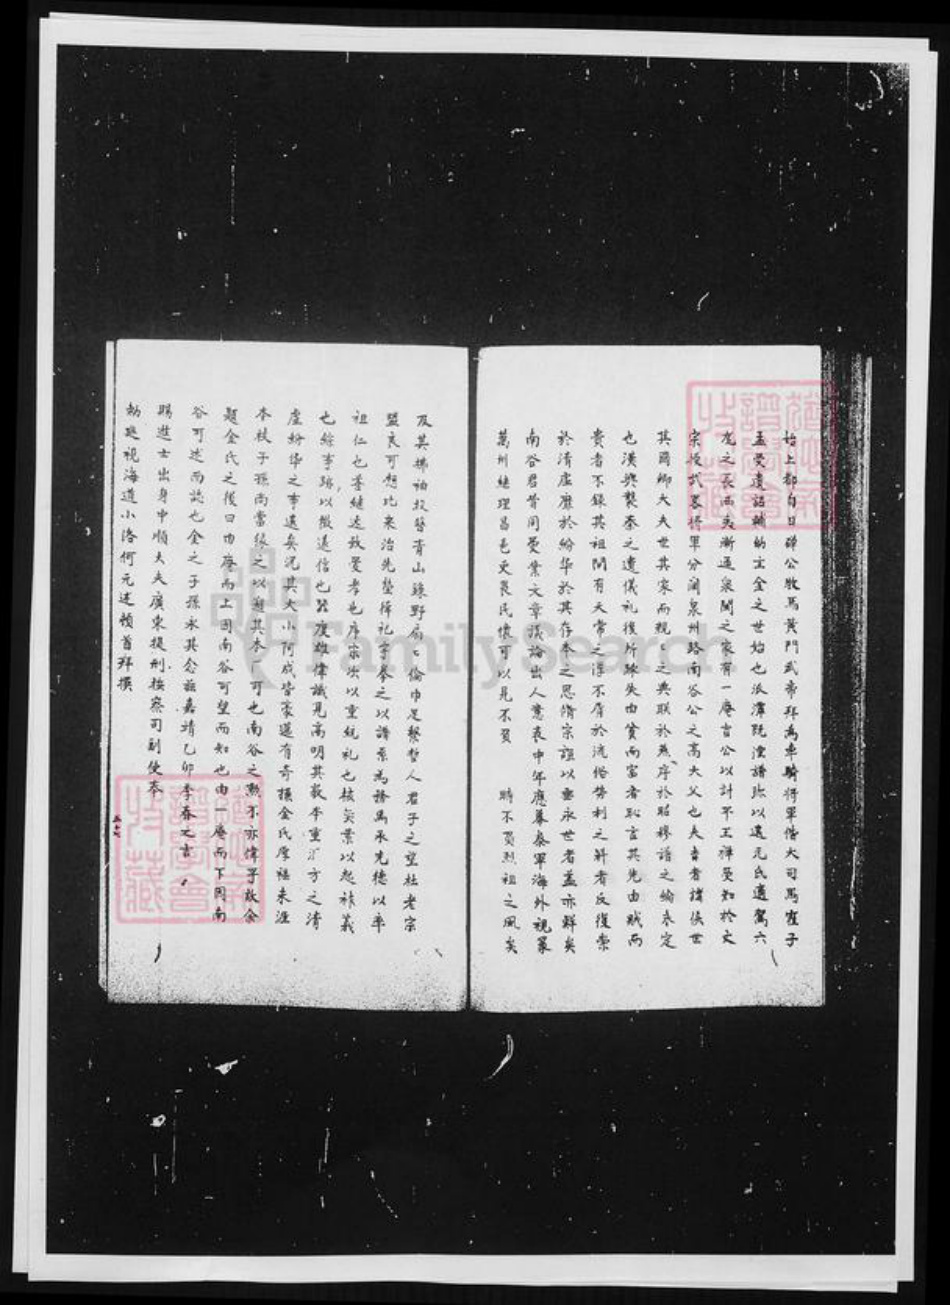 始上都自日磾公牧馬黃門武帝拜為車騎將軍偕大司馬霍子
孟受遺詔輔幼主金之世始也派潭既湮譜孫以遺元氏遺駕六
龙之長西夷漸通泉閩之家有一庵吉公以計平王祥受知於文
宗授武畧將軍分閫泉州路南谷公之高大父也夫古者諸侯世
其國卿大夫世其家而親之典联於燕序於昭穆譜之綸未定
也漢興襲秦之遺儀礼復所缺失由貧而富者恥言其先由賤而
貴者不錄其祖間有天常之淮不屑於流俗势利之斜者反復索
於清虛靡於紛华於其存本之思脩宗誼以垂永世者蓋亦鲜矣
南谷君昔同受業文章議論出人意表中年應募泰軍海外視篆
萬州繼理昌邑吏畏民懷可以見不負 時不負烈祖之風矣
及其拂袖投簪青山綠野扁仁倫巾足繫哲人君子之望社老宗
盟良可想比來治先塋葺礼宇拳之以譜系為務焉承先德以率
祖仁也善繼述致愛孝也序宗派以重統礼也核矢業以起祚義
也綜事跡以徵遠信也器度雄偉識見高明其敦本重 方之清
虛紛华之事遠矣況其大小阿成皆豪邁有奇操金氏厚福未涯
本枝子孫尚當張之以迴其本厂可也南谷之熟不亦偉乎故余
題金氏之後曰由庵而上因南谷可望而知也由一庵而下因南
谷可述而誌也金之子孫永其念茲嘉靖乙卯季春之吉
賜進士出身中順大夫廣東提刑按察司副使奉
勅巡視海道小洛何元述頓首拜撰
五十六
FamilySearch